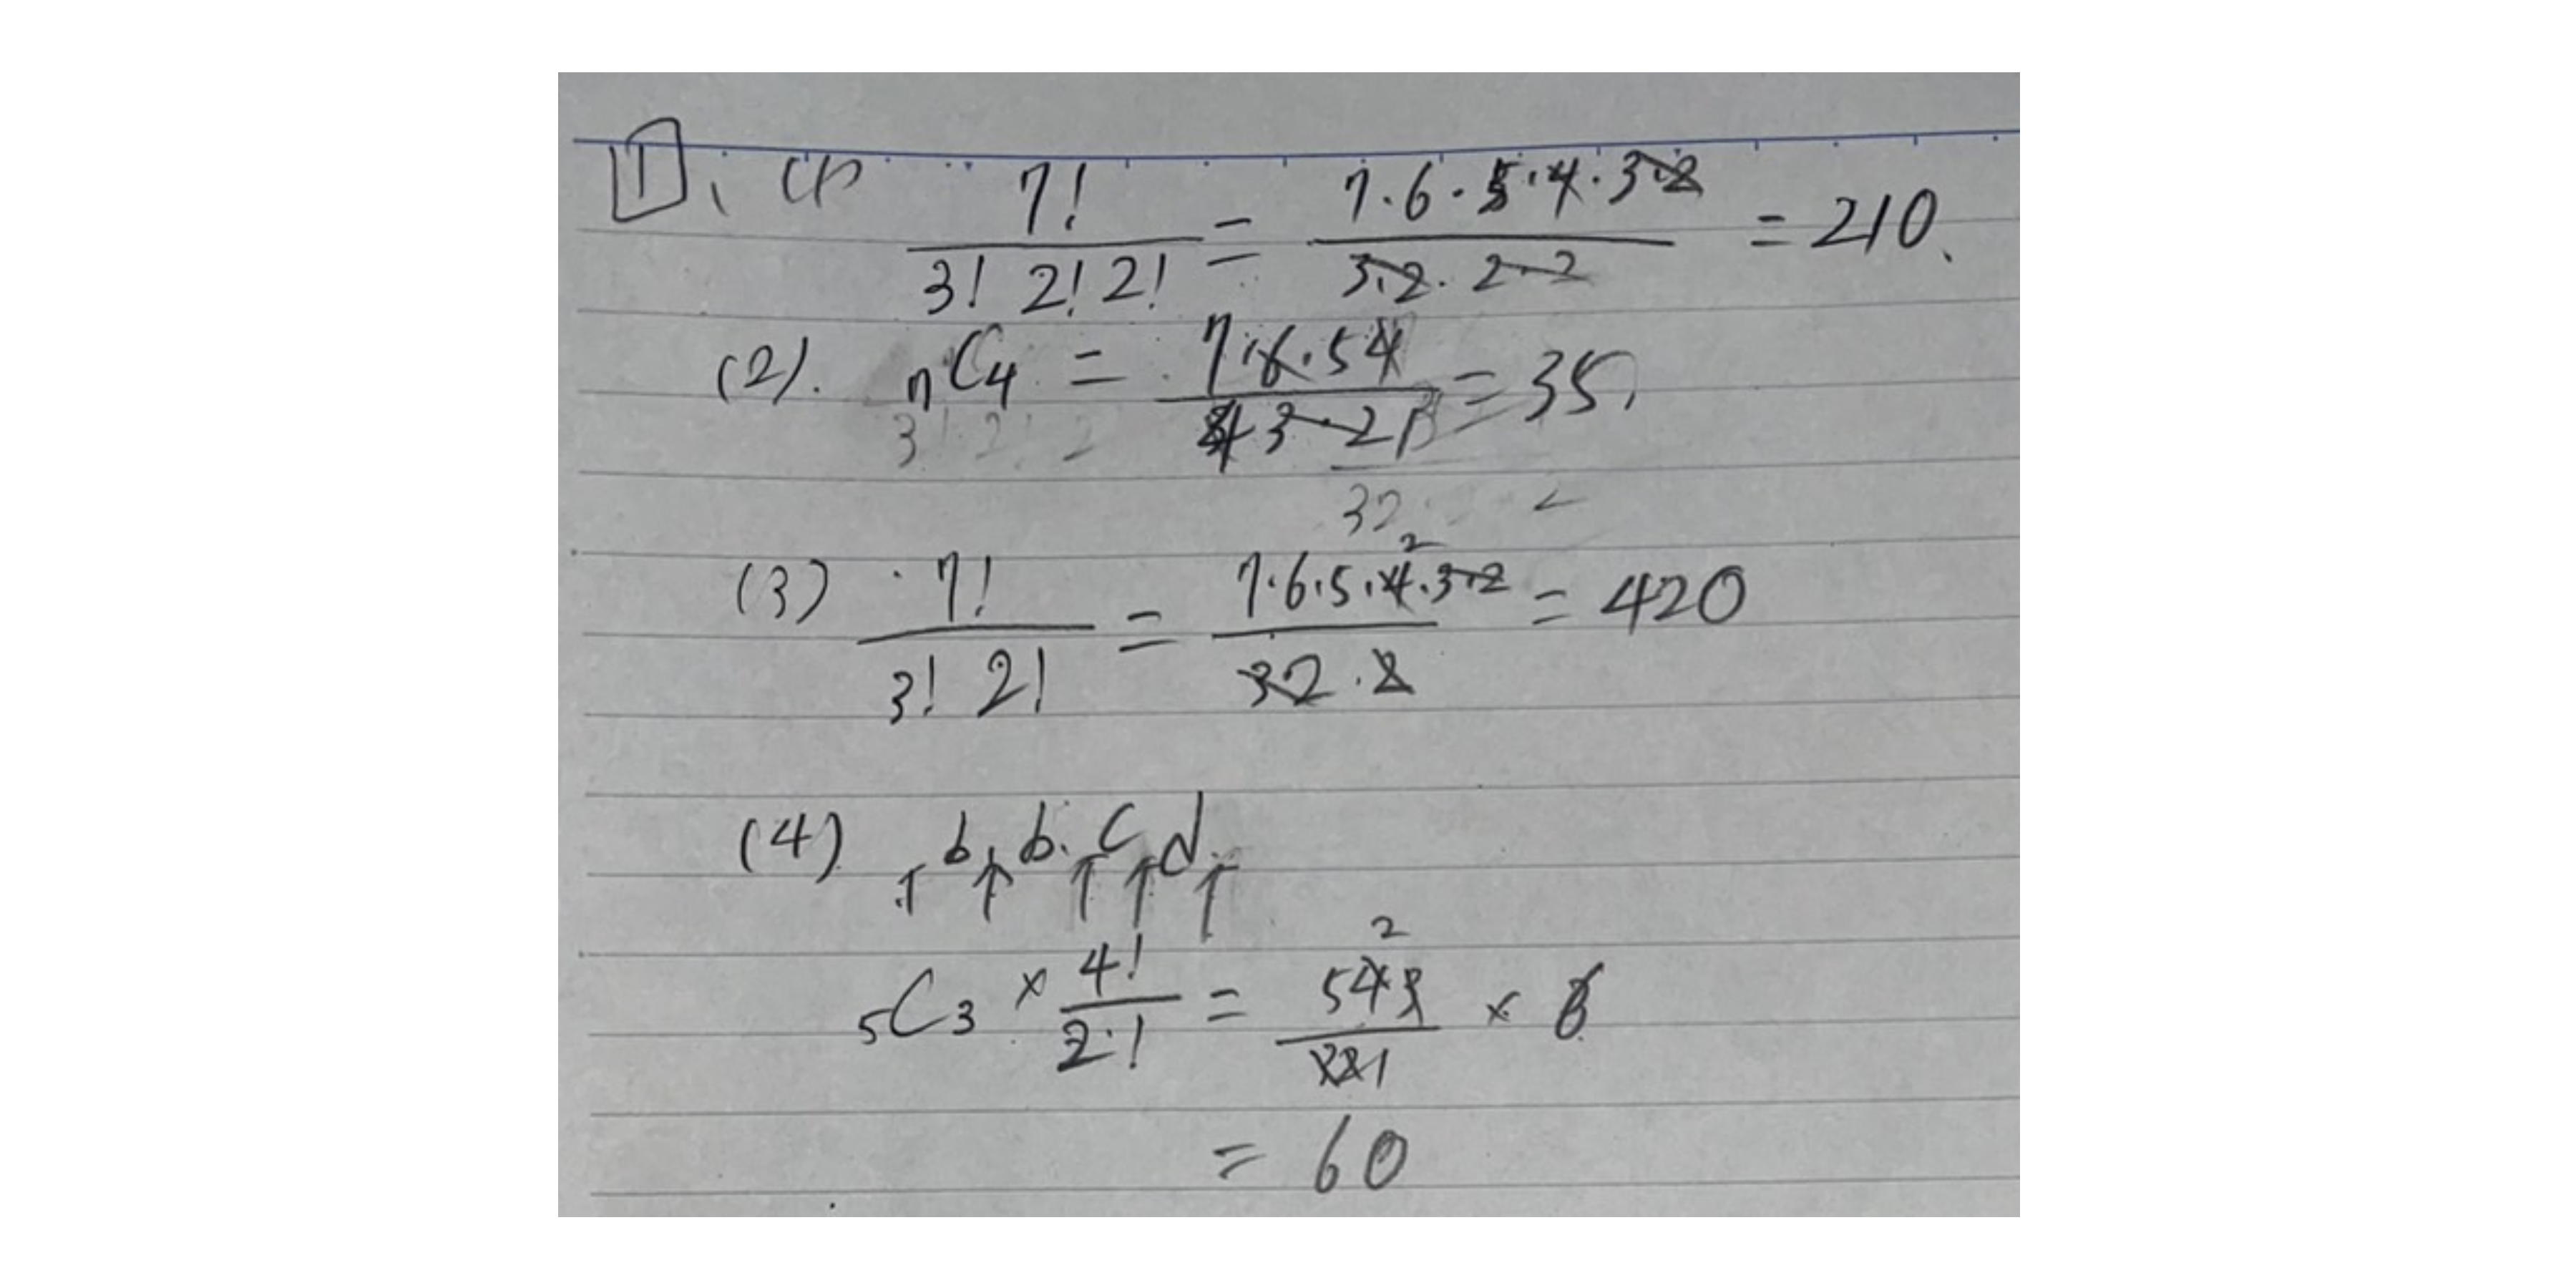 1, (1) 7!/(3! 2! 2!) = (7·6·5·4·3·2)/(3·2·2·2) = 210.
(2). 7C4 = (7·6·5 4)/(4 3·2 1) = 35,
3! 2! 2
32
(3) 7!/(3! 2!) = (7·6·5·4·3·2)/(3 2·2) = 420
2
(4) ↑ b ↑ b. ↑ c ↑ d ↑
5C3 × 4!/2! = (5 4 3)/( 2 1) ×
2
= 60